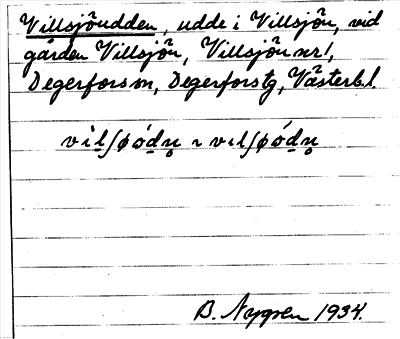 Villsjöudden, udde i Villsjön, vid
gården Villsjön, Villsjön nr 1,
Degerfors sn, Degerfors tg, Västerb. l.
B. Nygren 1934.